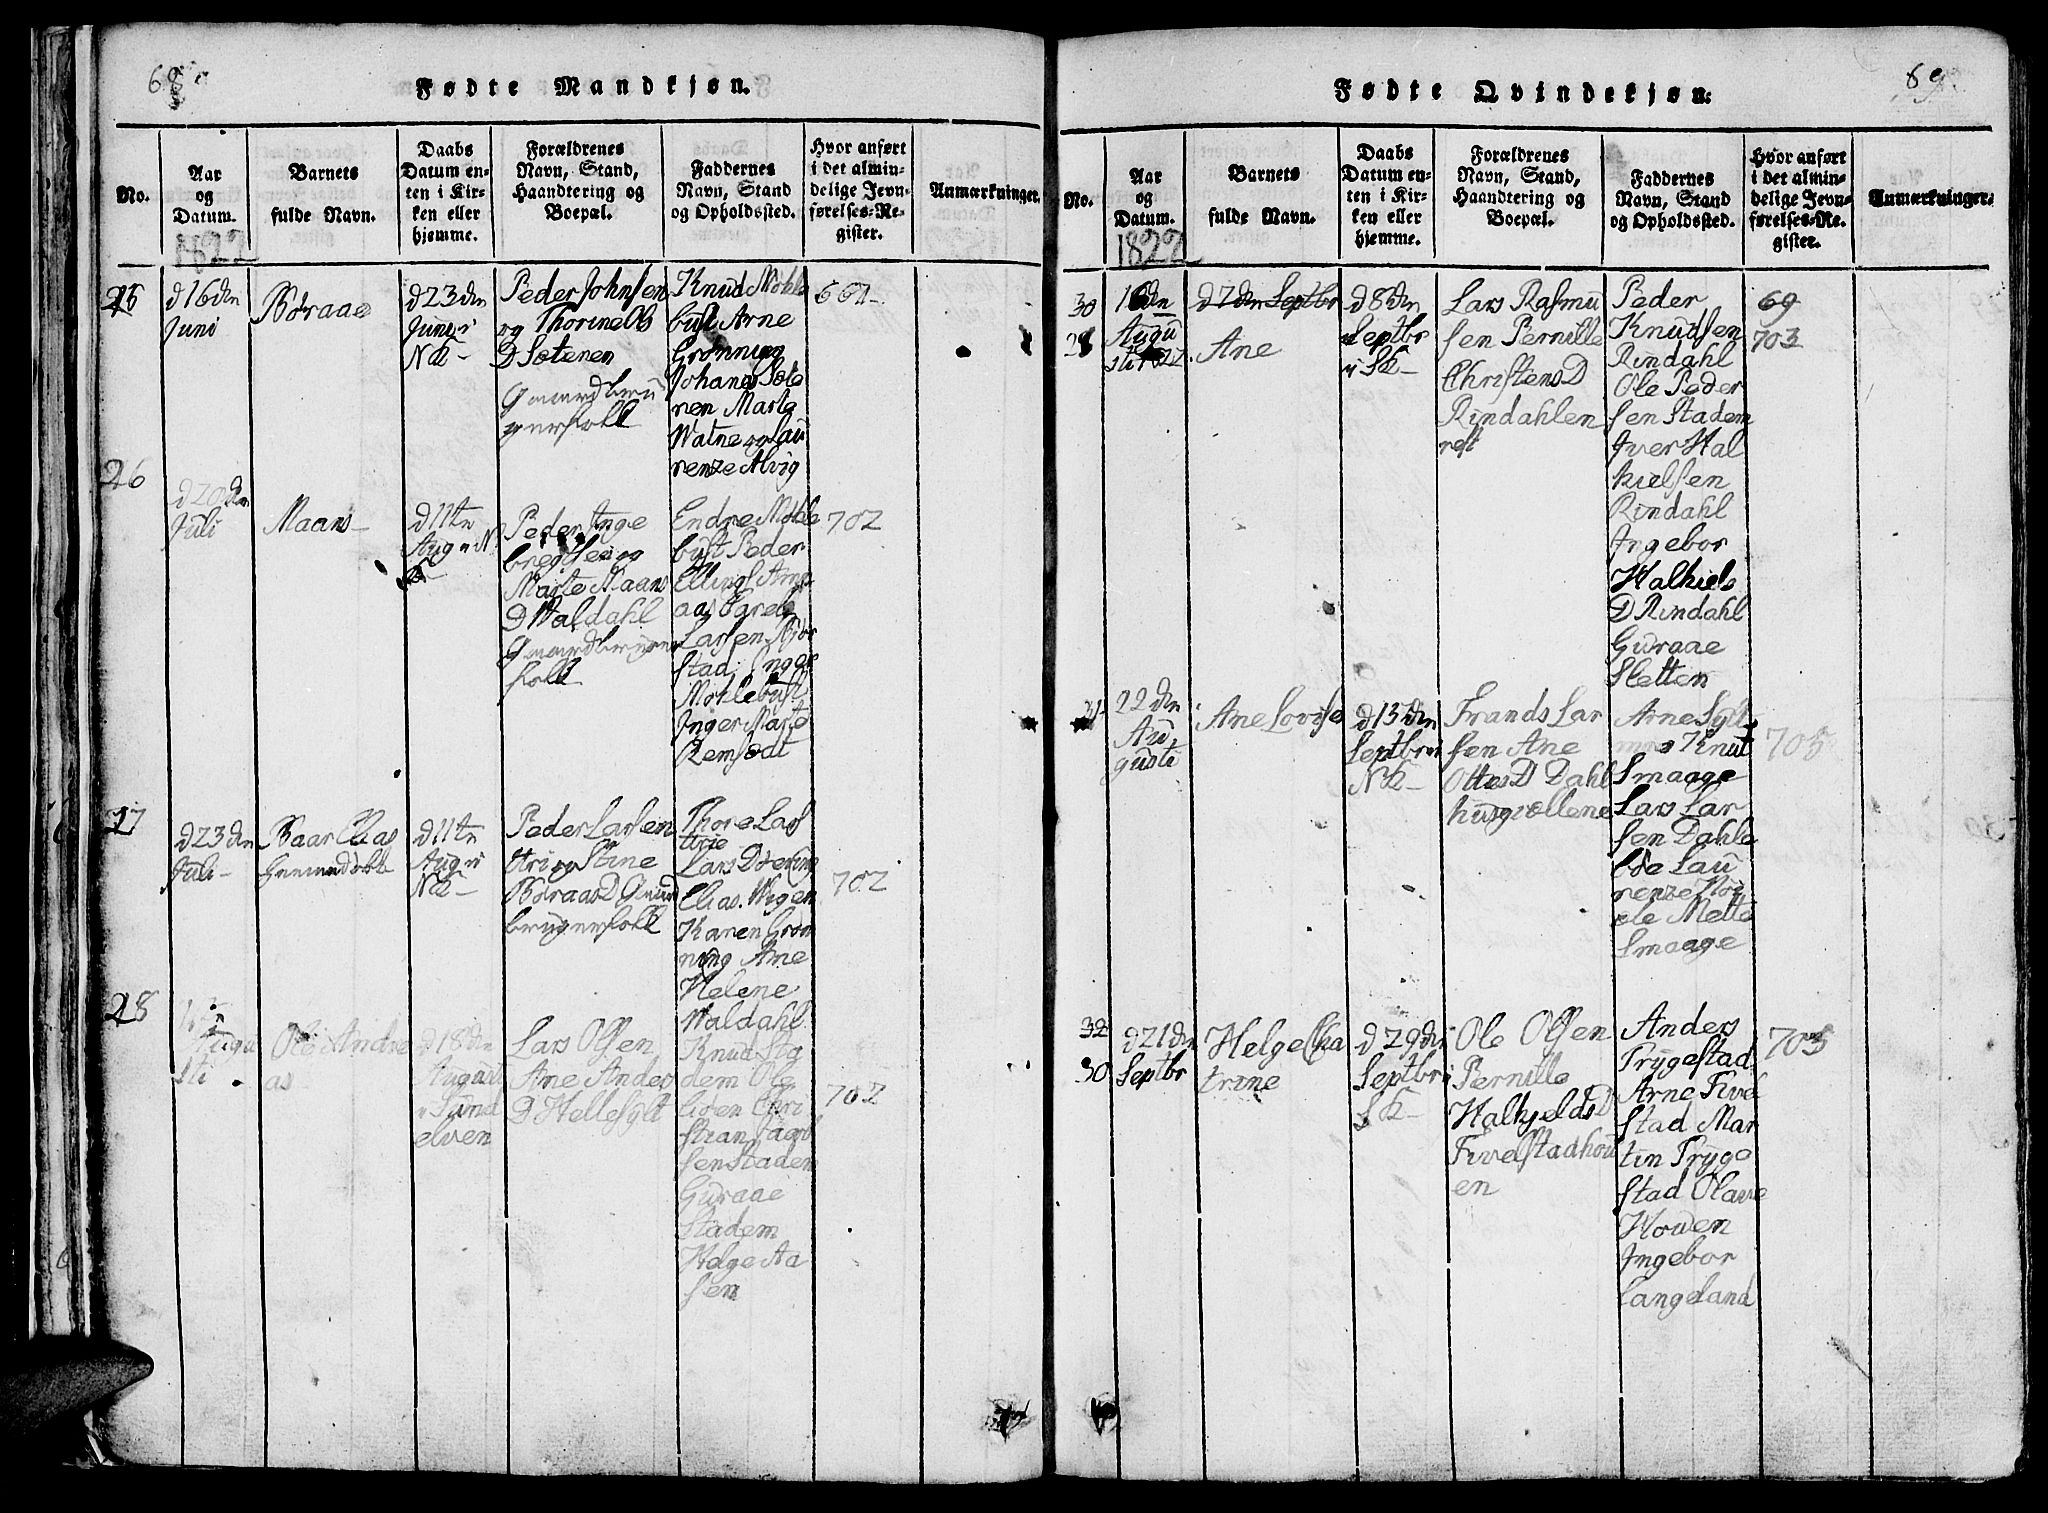 68
Fødte Mandkjøn.
No.
Aar
og
Datum.
1822
Barnets
fulde Navn.
Daabs
Datum en-
ten i Kir-
ken eller
hjemme.
Forældrenes
Navn, Stand,
Haandtering og
Boepæl.
Faddernes
Navn, Stand
og Opholdssted.
Hvor anført
i det almin-
delige Jevn-
førelses-Re-
gister.
Anmærkninger.
25
d16dn
Juni
Boraae
d23dn
Juni i
NK-
Peder Johnsen
og Thorine Ols
D Sætenen
Gaardbru
gerfolk
Knud Mohle
bust Arne
Grønning
Johanes Sæte
nen Marte
Watne og Lau
renze Alvig
661
26
d20dn
Juli
Maans
d11tn
Aug i N
K-
Peder Inge
bregtsen og
Marte Maans
D Waldahl
Gaardbruger
folk
Endre Mohle
bust Peder
Ellings Arne
aas
Larsen Bjør
stad Ingge
Mohlebust
Inger Marte
Remsødt
702
27
d23dn
Juli-
Baar Elias
d11tn
Aug i
NK-
Peder Larsen
Strig Stine
Boraas D Gaard
brugerfolk
Thore Lars
Lars
Elias Wigen
Karen Grøn
ning Ane
Helene
Waldahl
702
28
Augu
sti
Ole Andre
as
d18dn
August
i Sund
elven
Lars Olsen
Ane Anders
D Hellesylt
Knud Sta
dem Ole
Lisen Chri
stian Jacob
sen Stadem
Guraae
Stadem
Helge Aa
sen
702
69
Fødte Qvindekjøn.
No.
Aar
og
Datum.
1822
Barnets
fulde Navn.
Daabs
Datum en-
ten i Kir-
ken eller
hjemme.
Forældrenes
Navn, Stand,
Haandtering og
Boepæl.
Faddernes
Navn, Stand
og Opholdssted.
Hvor anført
i det almin-
delige Jevn-
førelses-Re-
gister.
Anmærkninger.
30
28
16dn
Augu
sti
d7dn Septbr
Ane
d8dn
Septbr
i SK-
Lars Rasmu
sen Pernille
Christens D
Rindahlen
Peder
Knudsen
Rindahl
Ole Peder
sen Stadem
Iver Hal
kielsen
Rindahl
Ingebor
Halkiels
D Rindahl
Guraae
Sletten
69
703
31
22dn
Au
gusti
Ane Lovise
d13dn
Septbr i
NK-
Frands Lar
sen Ane
Ottes D Dahl
Arne Sylt
Knut
Smaage
Lars Lar
sen Dahle
Lau
renze
Mette
Smaage
705
32
30
d21dn
Septbr
Helge Cha
trine
d29dn
Septbr i
SK-
Ole Olsen
Pernille
Halkjelds D
Fivelstadhou
en
Anders
Trygestad
Arne Fivel
stad Mar
tin Tryge
stad Olave
Howen
Ingebor
Langeland
705